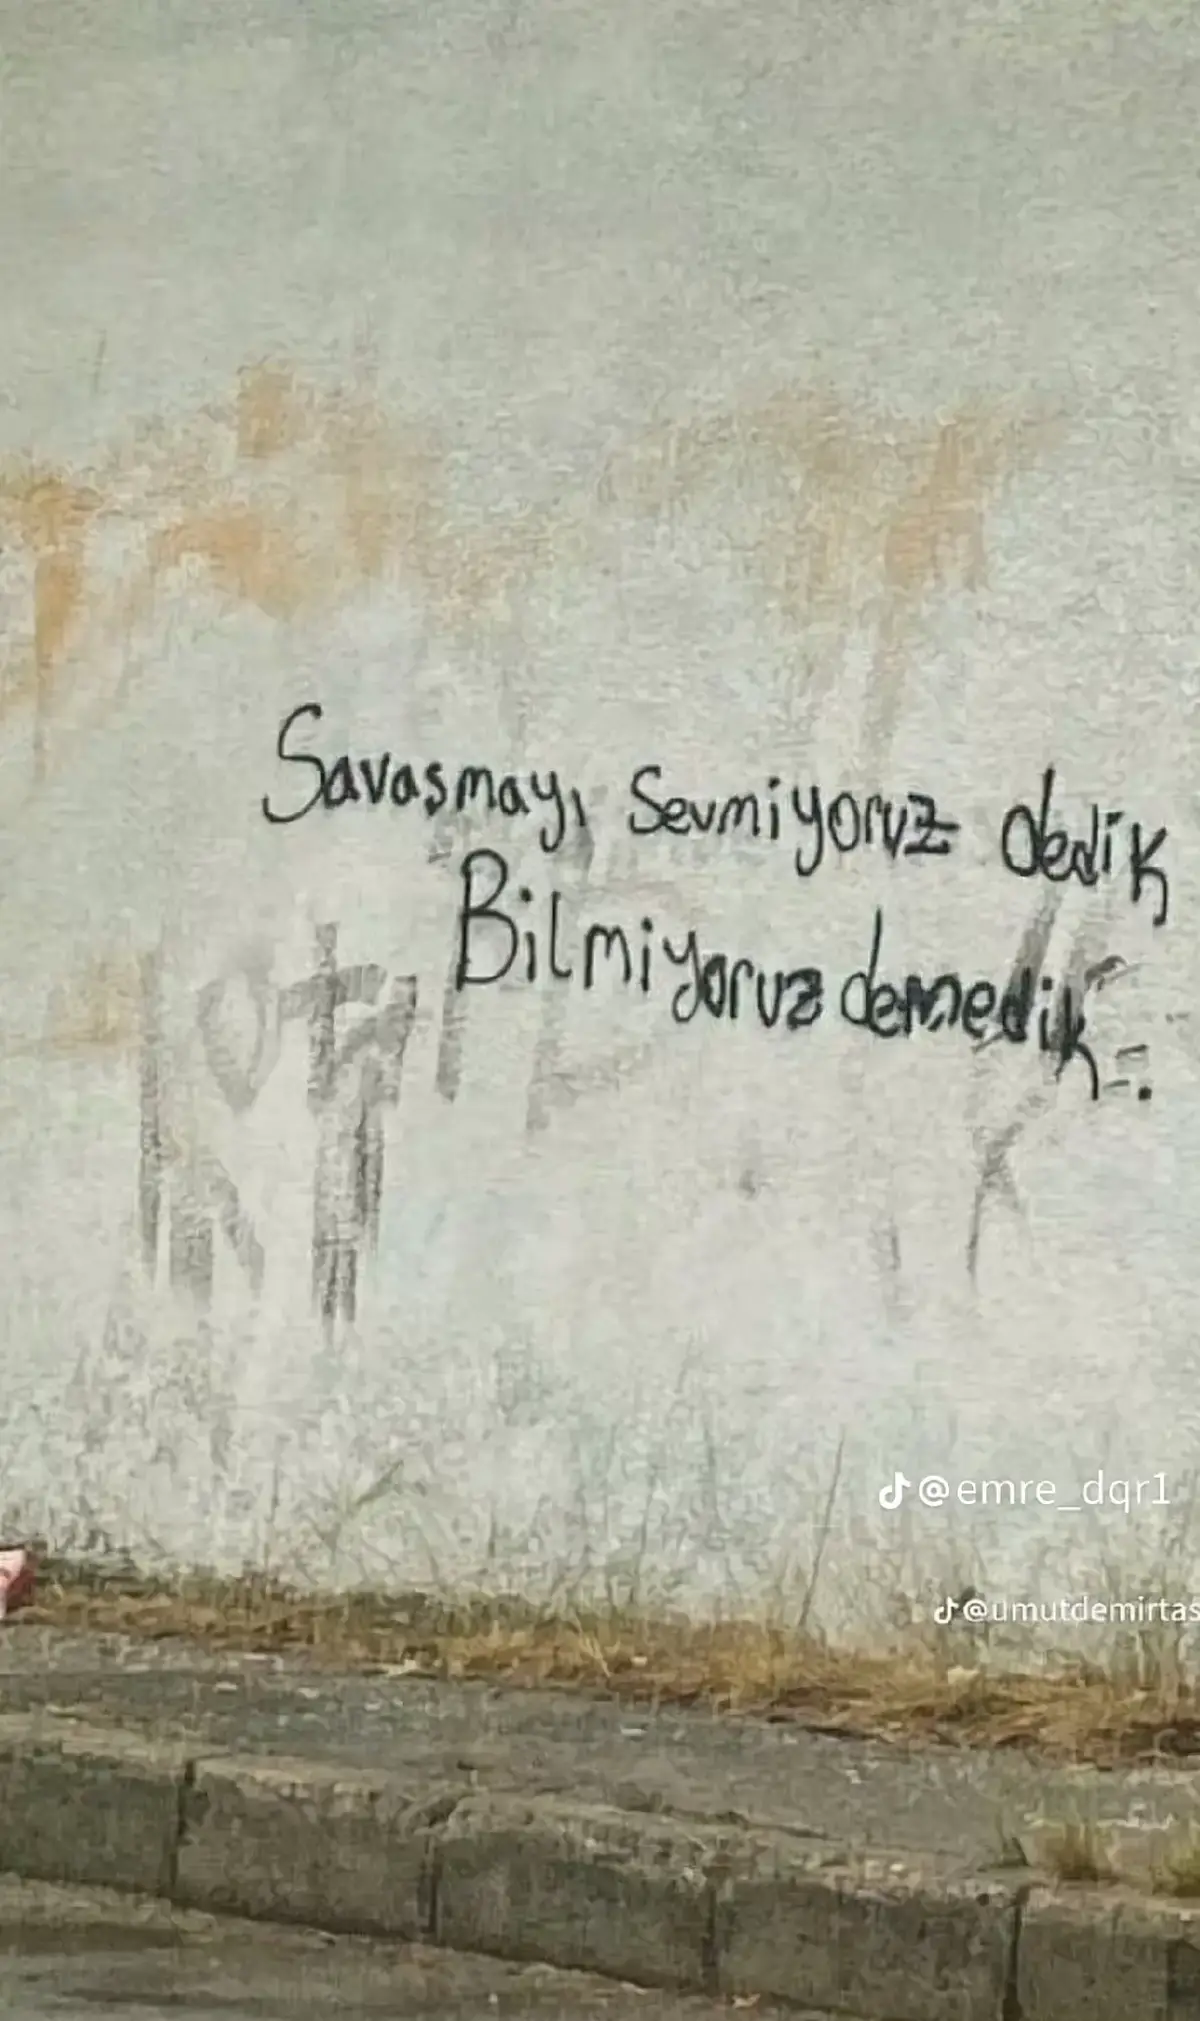 Savaşmayı sevmiyoruz dedik
Bilmiyoruz demedik..
@emre_dqr1
@umutdemirtas